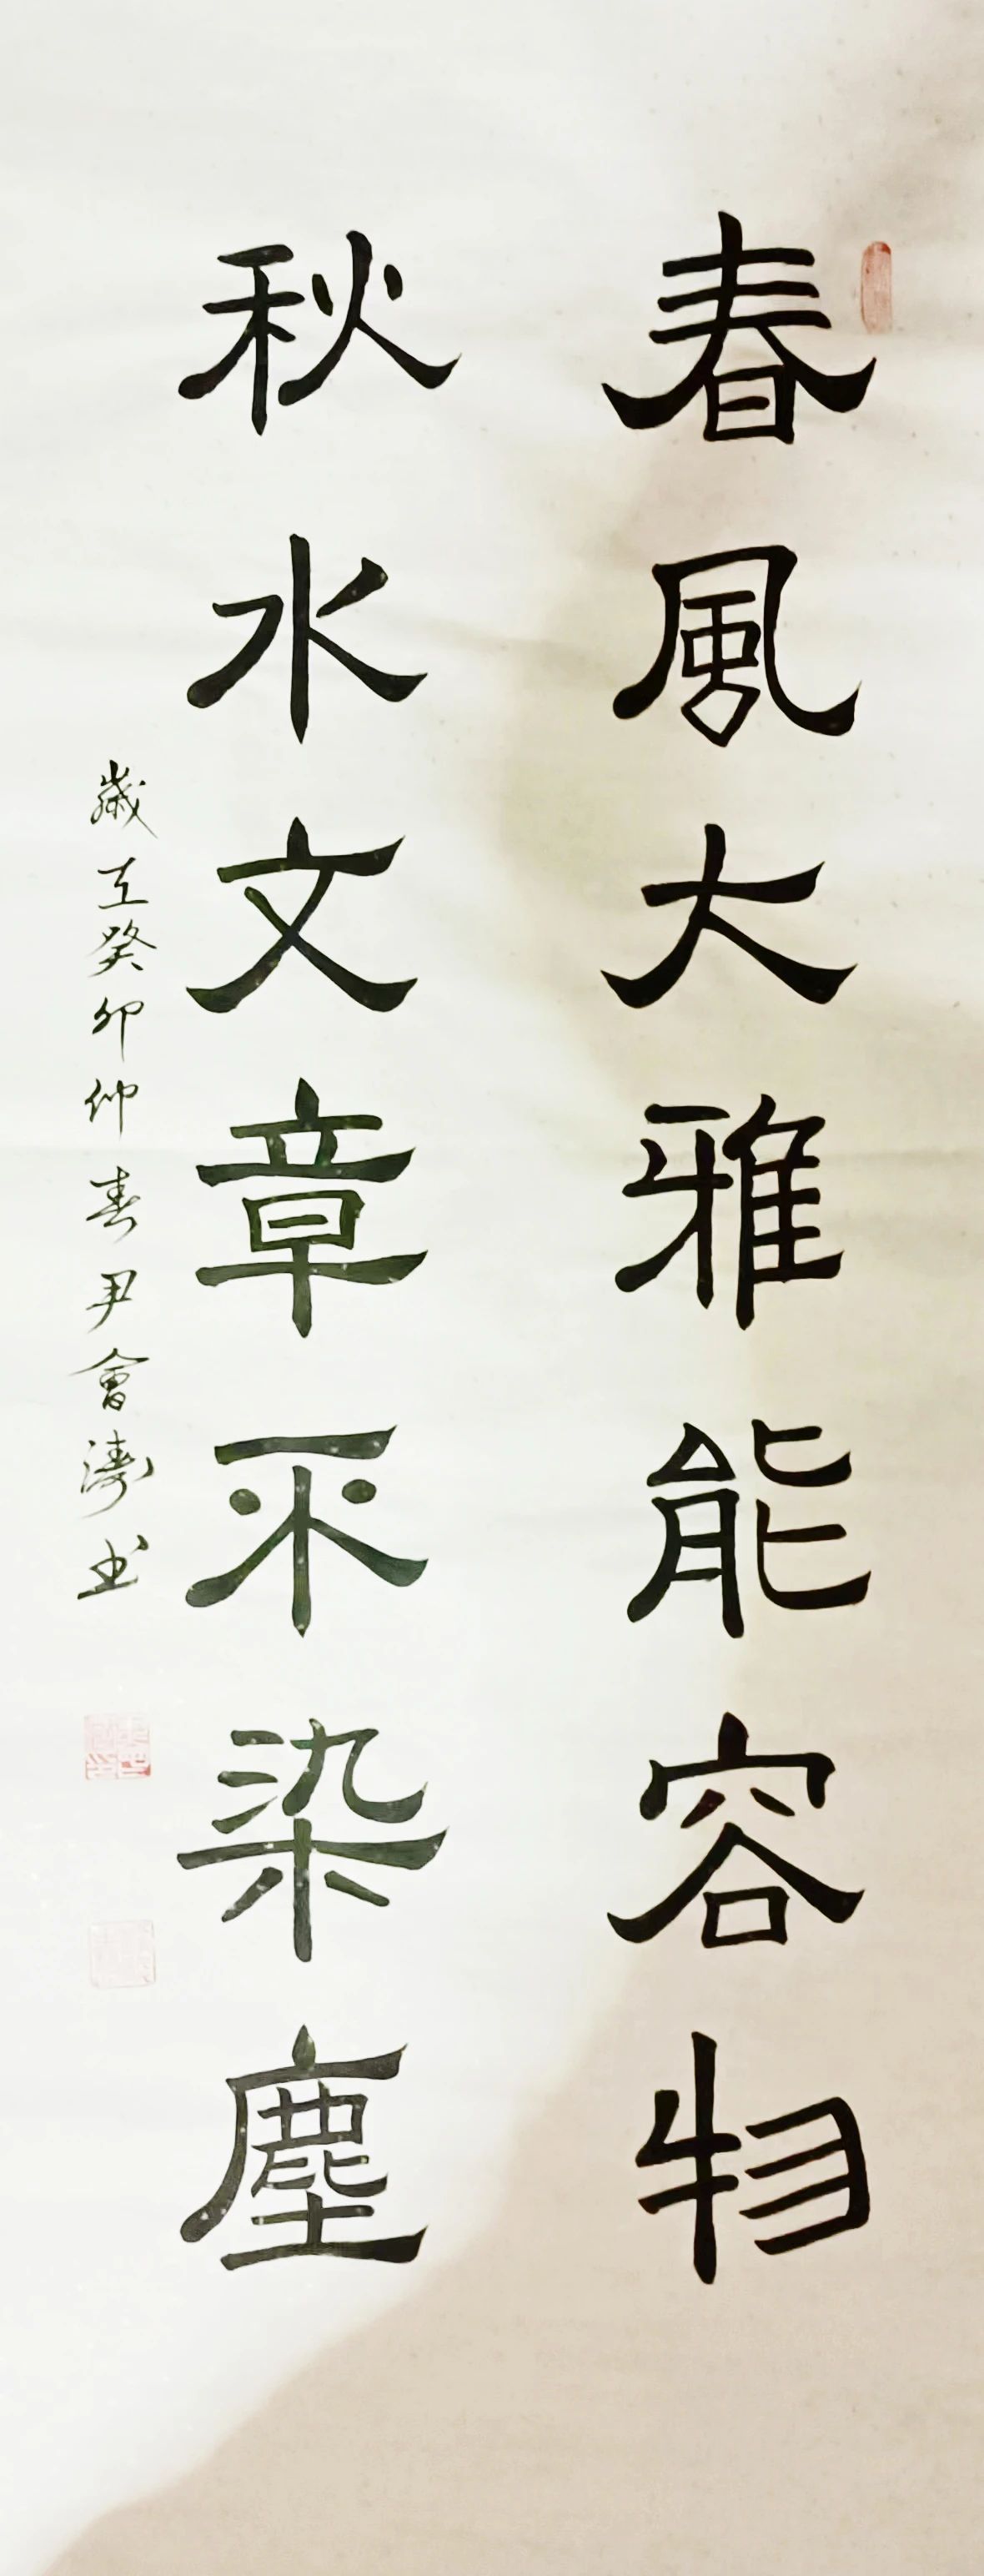 春風大雅能容物
秋水文章不染塵
歲在癸卯仲春尹會濤书